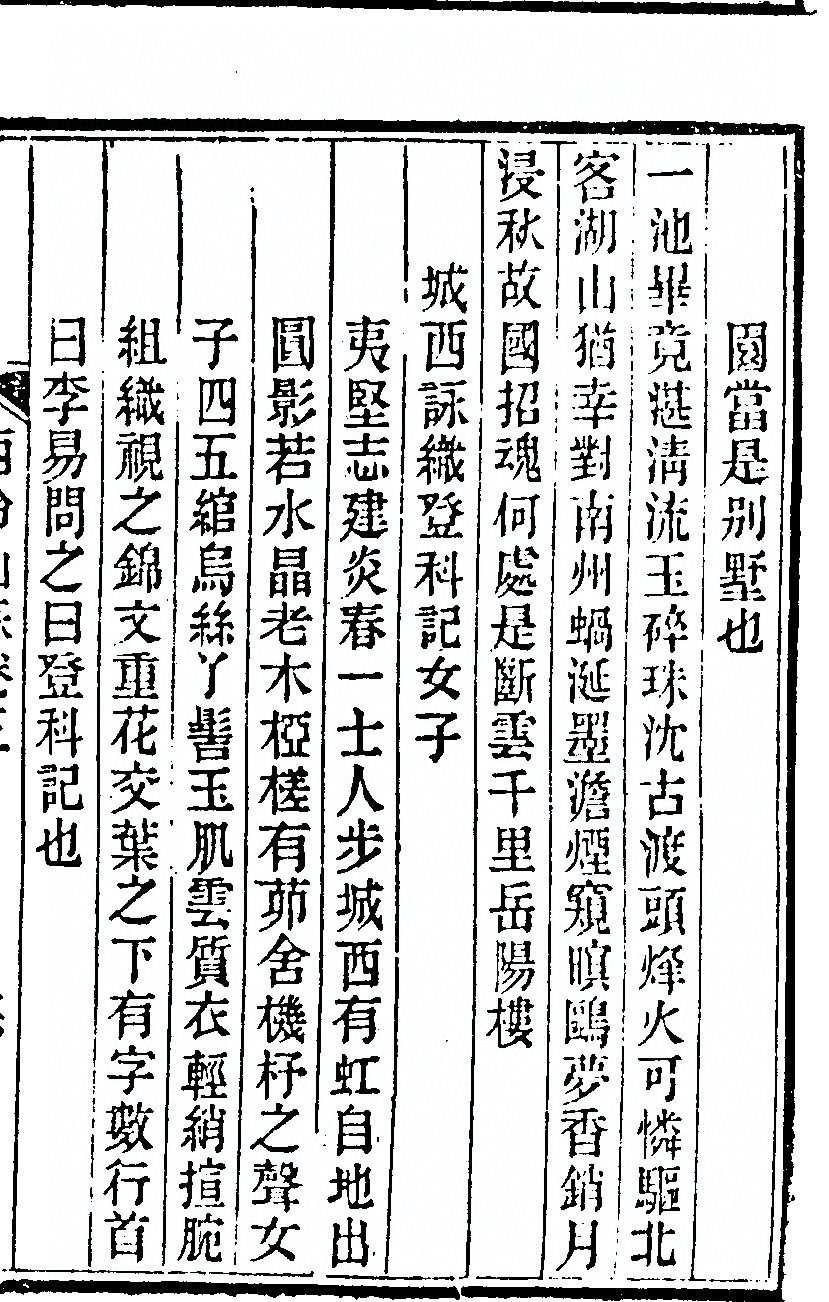 園當是别墅也
一池畢竟湛淸流玉碎珠沈古渡頭烽火可憐驅北
客湖山猶幸對南州蝸涎墨澹煙窺暝鷗夢香銷月
浸秋故國招魂何處是斷雲千里岳陽樓
城西詠織登科記女子
夷堅志建炎春一士人步城西有虹自地出
圓影若水晶老木椏槎有茆舍機杼之聲女
子四五綰烏絲丫髻玉肌雲質衣輕綃揎腕
組織視之錦文重花交葉之下有字數行首
曰李易問之曰登科記也